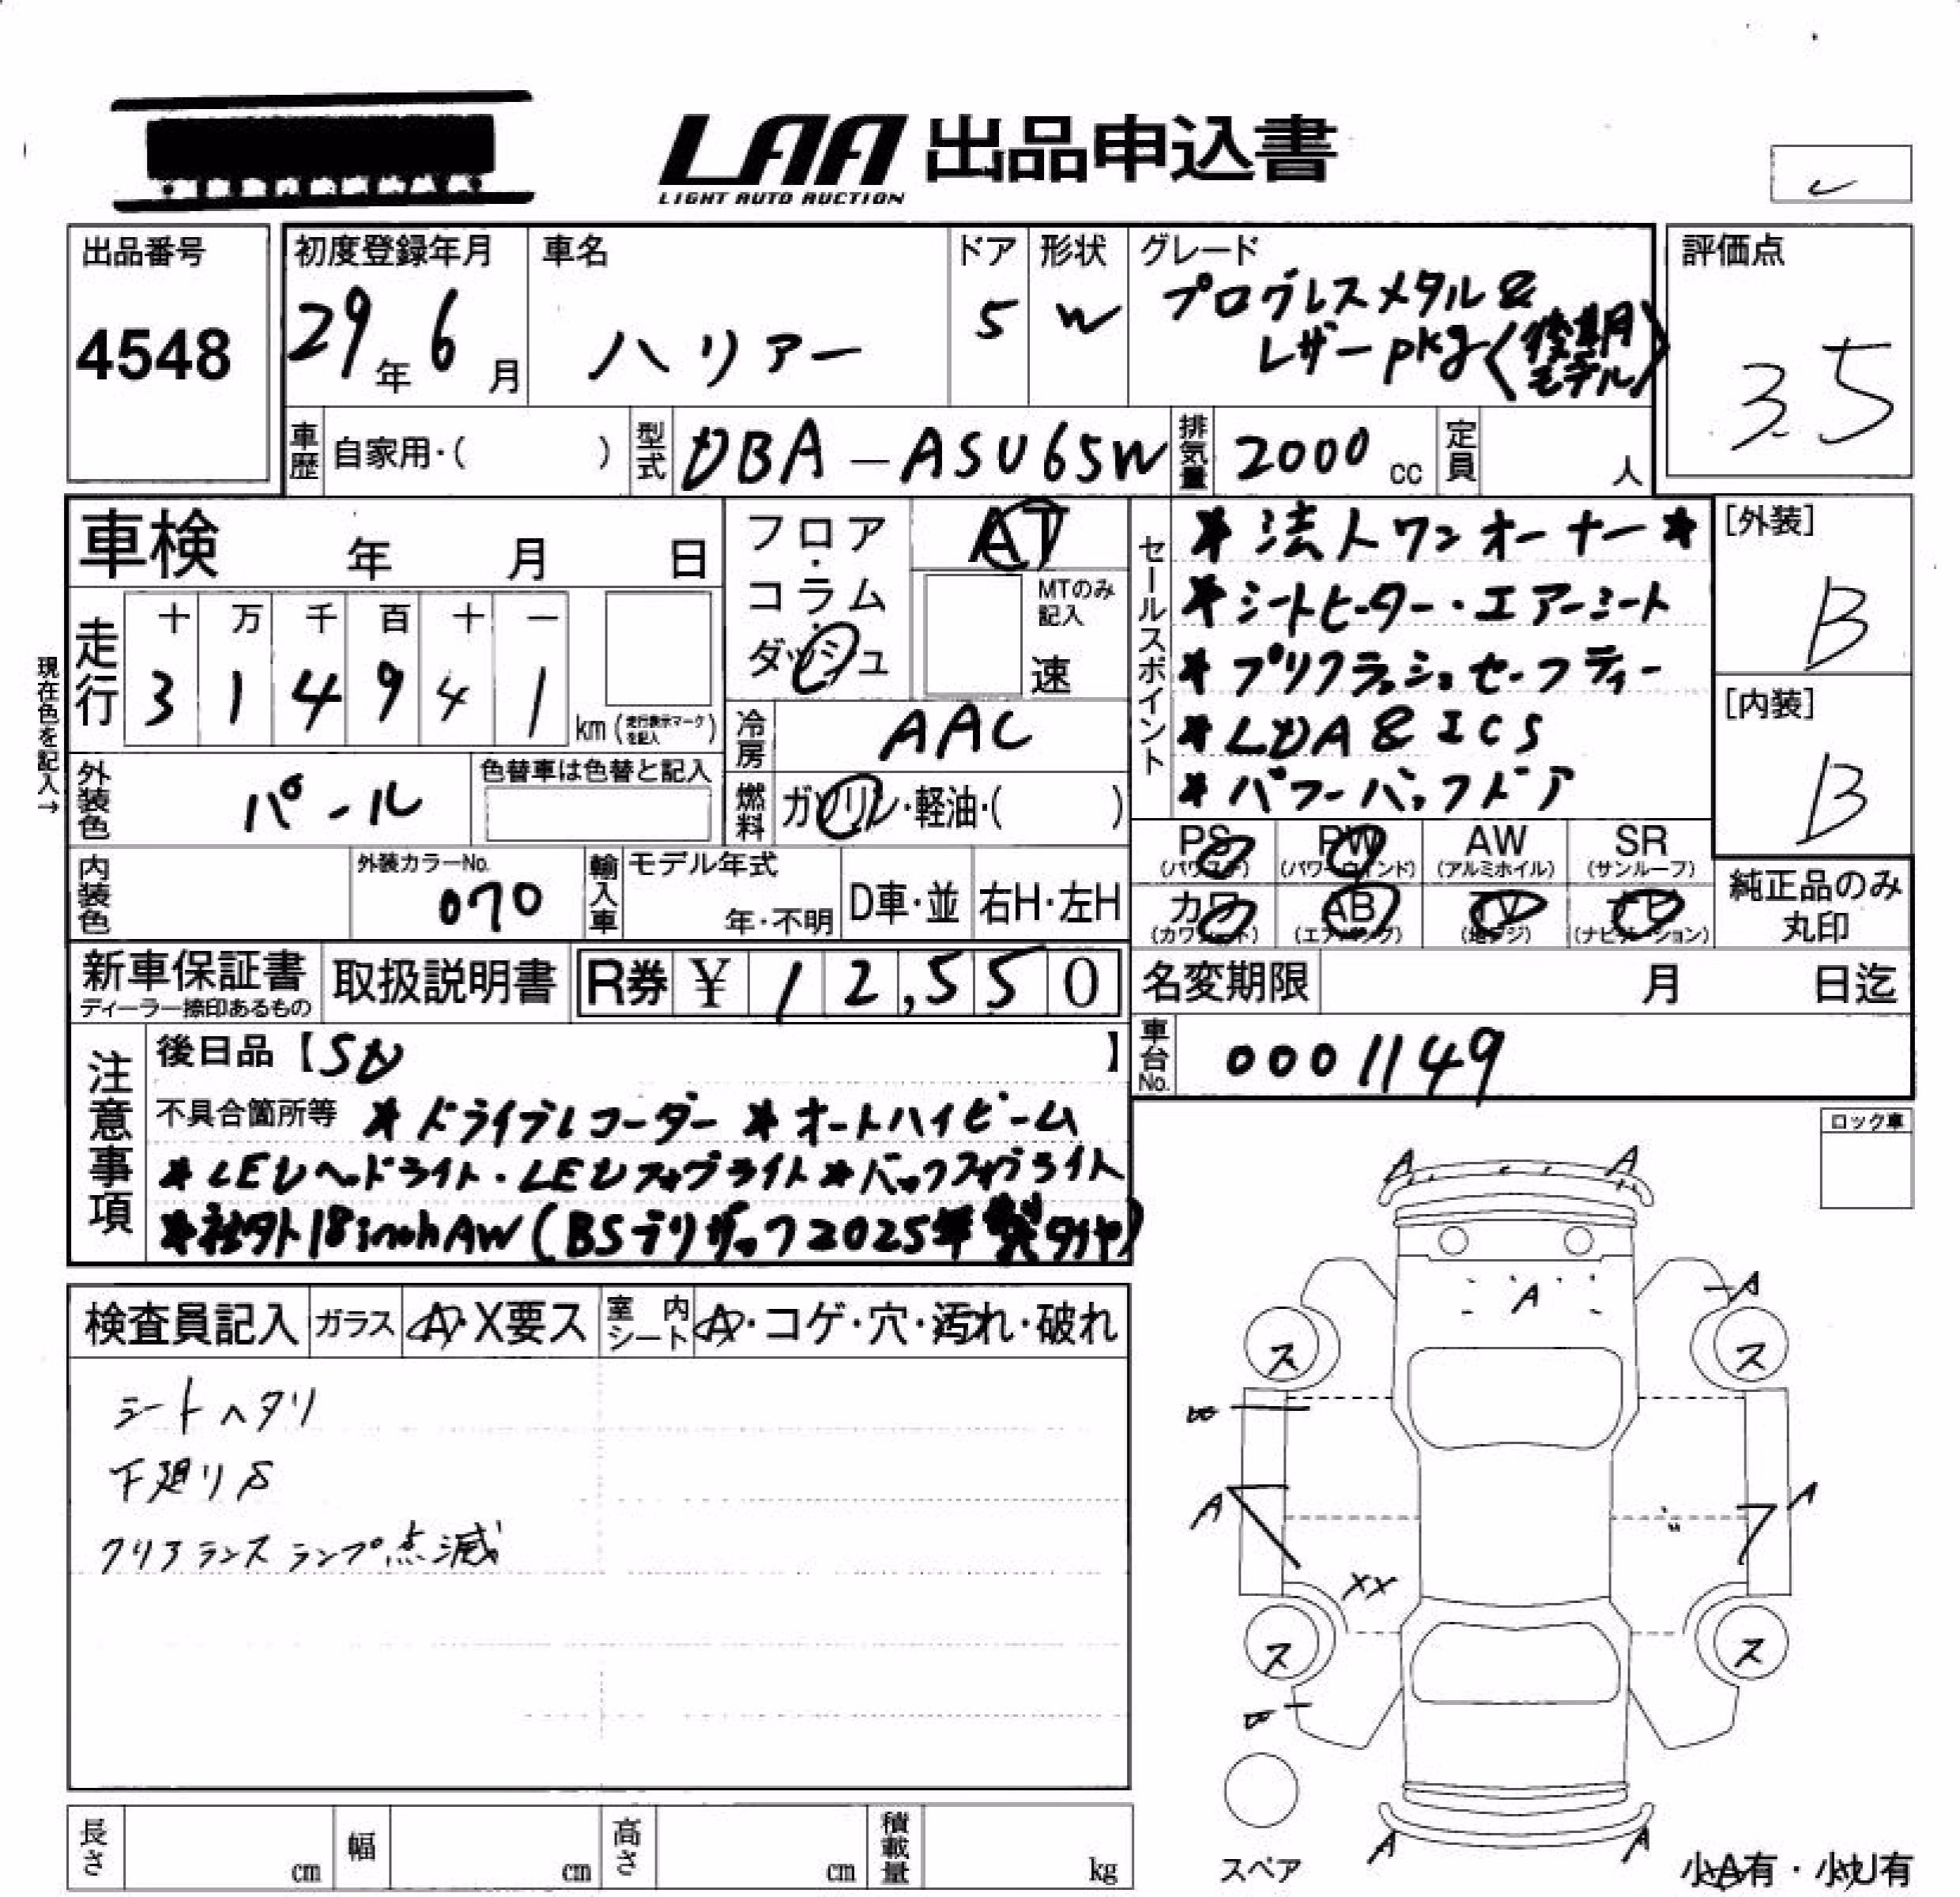 LAA 出品申込書
LIGHT AUTO AUCTION
出品番号
4548
初度登録年月
29年6月
車名
ハリアー
ドア
5
形状
W
グレード
プログレスメタル&
レザーpkg(後期モデル)
評価点
3.5
車歴
自家用・( )
型式
DBA-ASU65W
排気量
2000 cc
定員
人
車検 年 月 日
フロア・コラム・ダッシュ
AT
MTのみ記入
速
セールスポイント
*法人ワンオーナー*
*シートヒーター・エアーシート
*プリクラッシュセーフティー
*LDA&ICS
*パワーバックドア
[外装]
B
[内装]
B
現在色を記入→
走行
十 万 千 百 十 一
3 1 4 9 4 1
km(走行表示マークを記入)
冷房
AAC
外装色
パール
色替車は色替と記入
燃料
ガソリン・軽油・( )
PS
(パワステ)
PW
(パワーウインド)
AW
(アルミホイル)
SR
(サンルーフ)
カワ
(カワシート)
AB
(エアバック)
TV
(地デジ)
ナビ
(ナビゲーション)
純正品のみ
丸印
内装色
外装カラーNo.
070
輸入車
モデル年式
年・不明
D車・並
右H・左H
新車保証書
ディーラー捺印あるもの
取扱説明書
R券 ¥12,550
名変期限 月 日迄
車台No.
0001149
注意事項
後日品【SD】
不具合箇所等 *ドライブレコーダー *オートハイビーム
*LEDヘッドライト・LEDフォグライト*バックフォグライト
*社外18inchAW(BSデリザック2025年製タイヤ)
ロック車
検査員記入
ガラス
A・X要ス
室内シート
A・コゲ・穴・汚れ・破れ
シートヘタリ
下廻りS
クリアランスランプ点滅
A A
A
A
ス ス
A A
XX
ス ス
A A
スペア
小A有・小U有
長さ cm
幅 cm
高さ cm
積載量 kg